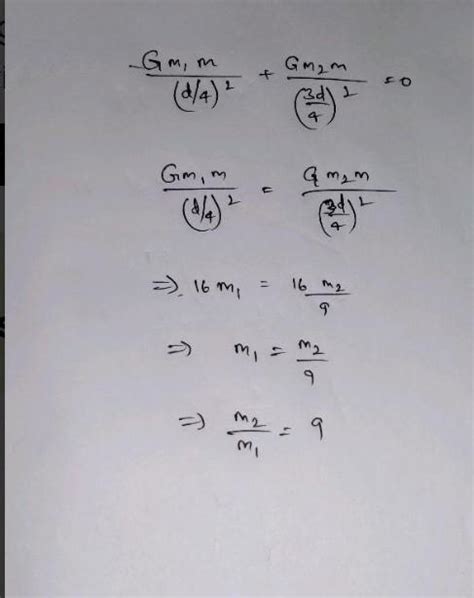 -Gm₁m/(d/4)² + Gm₂m/(3d/4)² = 0
Gm₁m/(d/4)² = Gm₂m/(3d/4)²
⇒ 16 m₁ = 16 m₂/9
⇒ m₁ = m₂/9
⇒ m₂/m₁ = 9